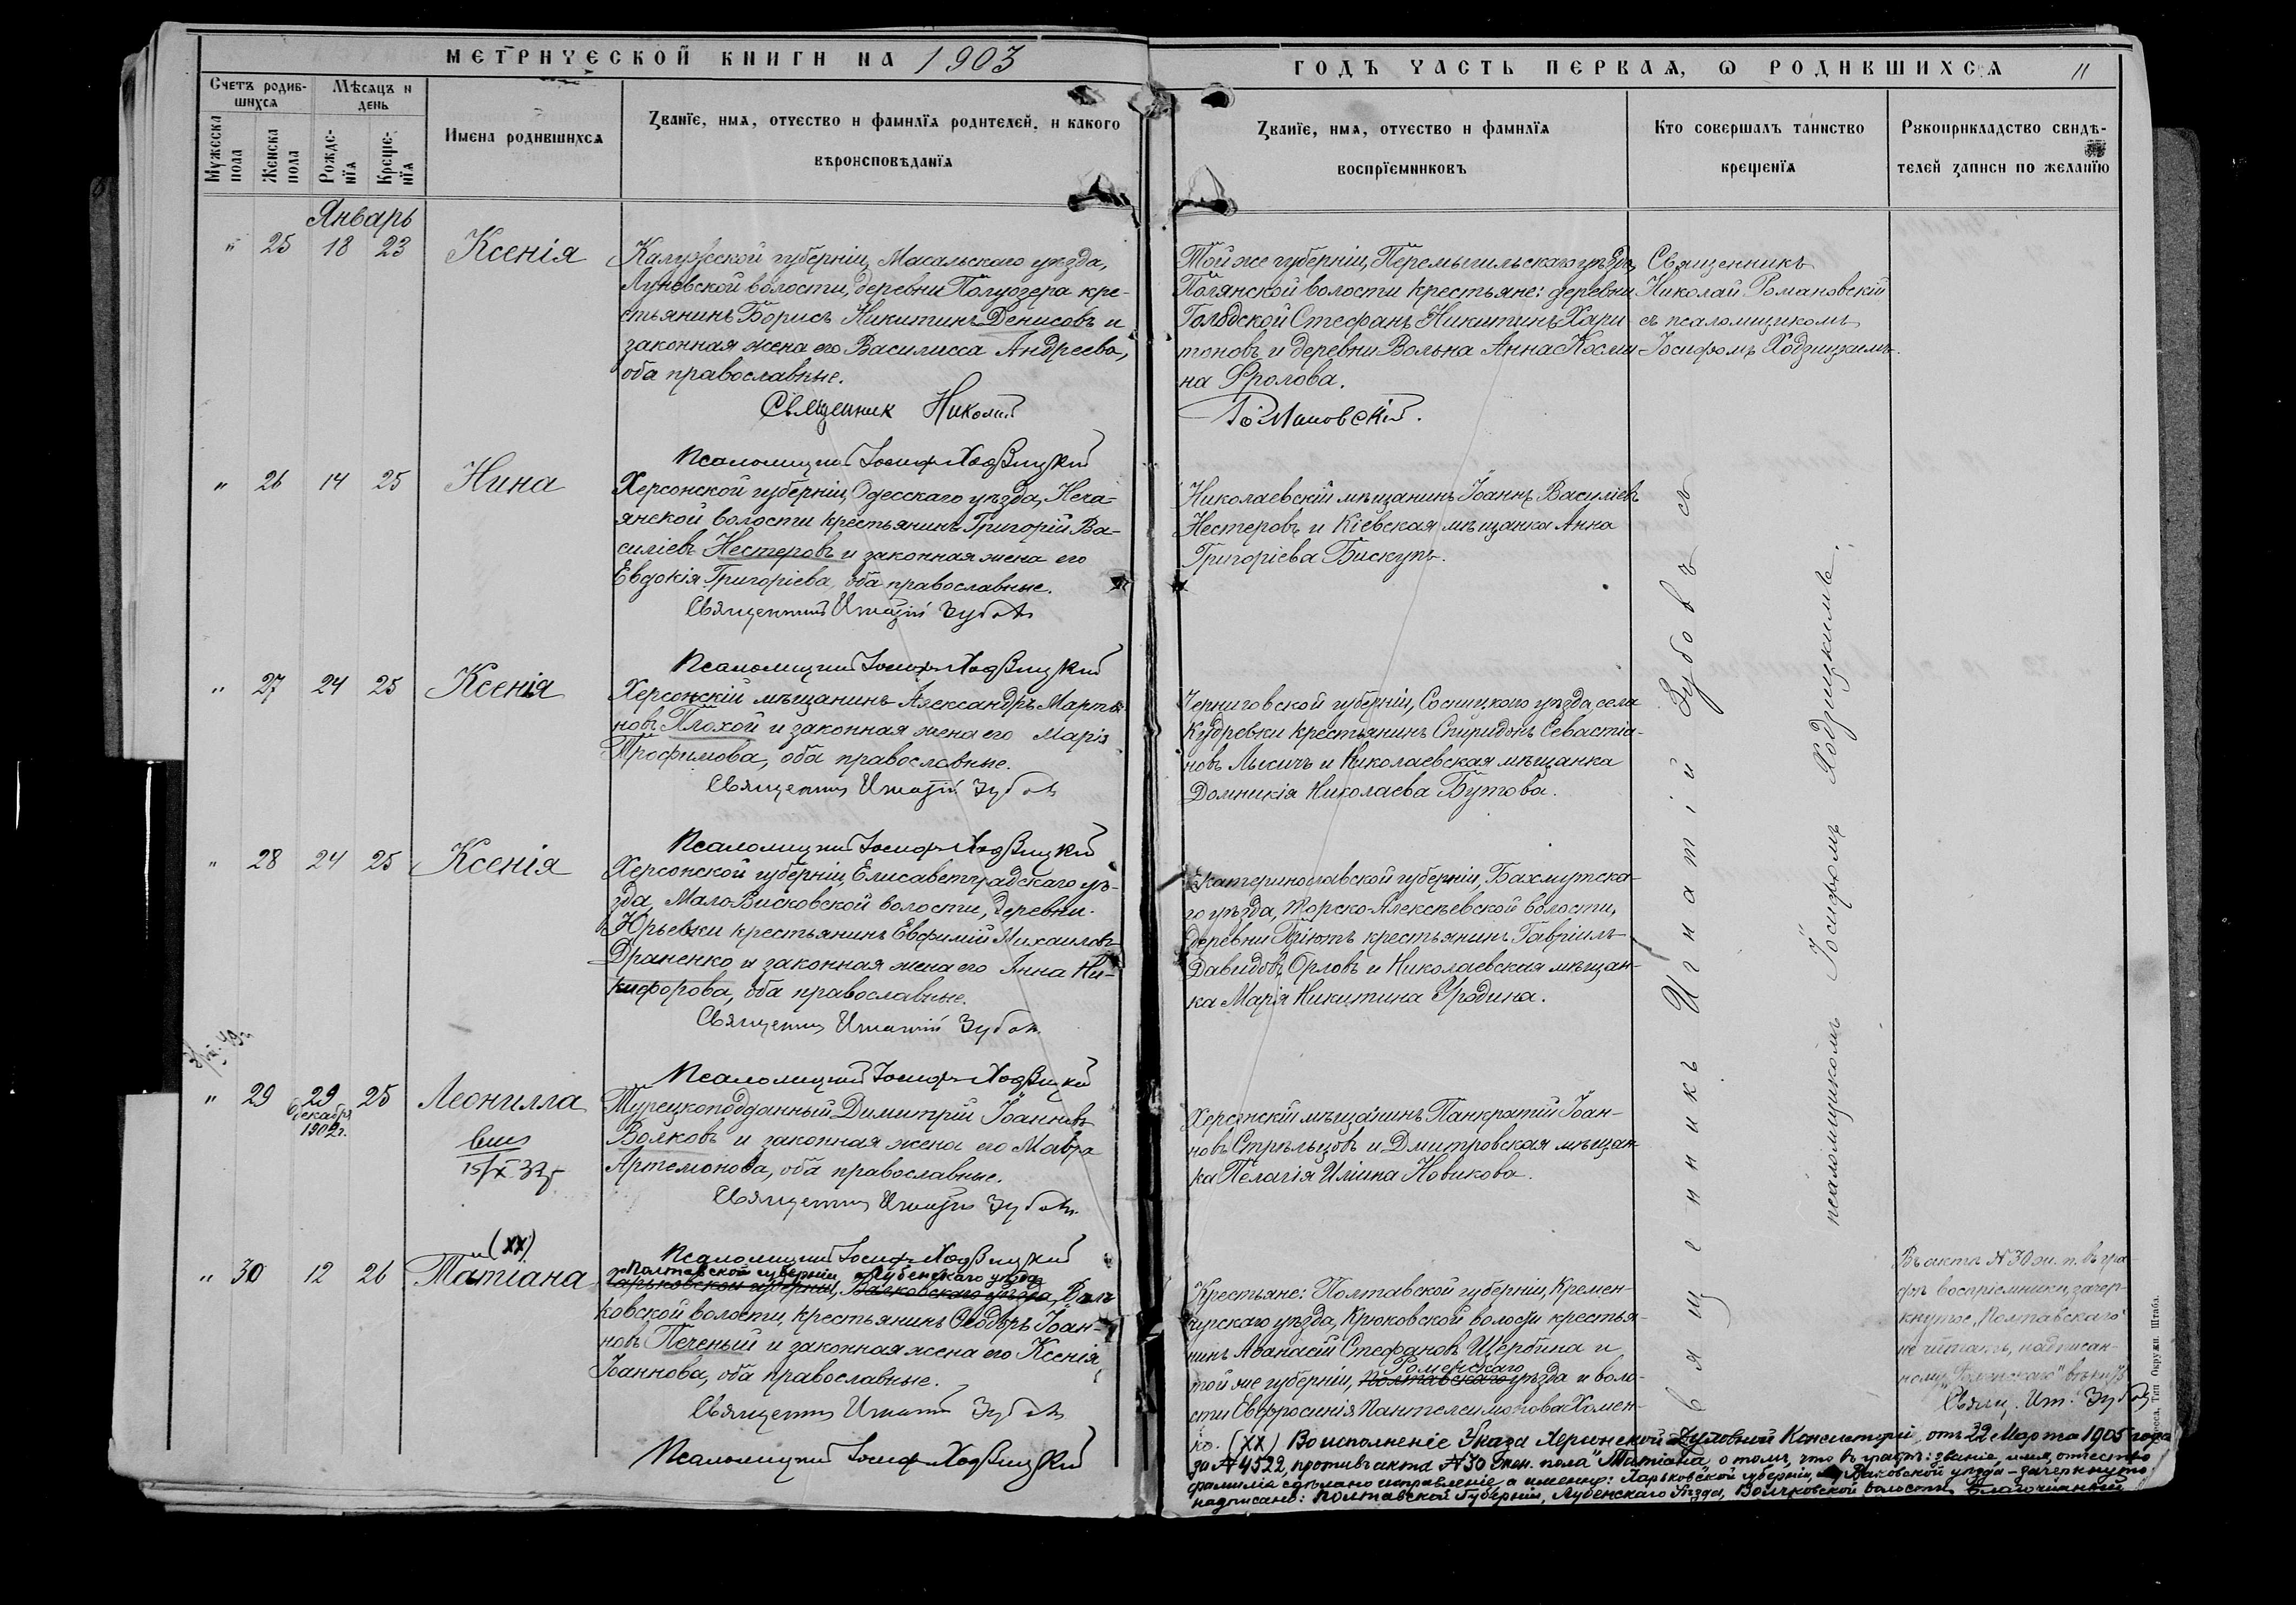 МЕТРИЧЕСКОЙ КНИГИ НА 1903
ГОДЪ ЧАСТЬ ПЕРВАЯ, Ѡ РОДИВШИХСЯ 11
Счетъ родив-
шихся
Мужеска
пола
Женска
пола
Мѣсяцъ и
день
Рожде-
нїя
Креще-
нїя
Имена родившихся
Званїе, имя, отчество и фамилїя родителей, и какого
вѣроисповѣданїя
Званїе, имя, отчество и фамилїя
воспрїемниковъ
Кто совершалъ таинство
крещенїя
Рукоприкладство свидѣ-
телей записи по желанїю
Январь
" 25 18 23 Ксенія
Калужской губерніи, Масальскаго уѣзда,
Луневской волости, деревни Полуозера кре-
стьянинъ Борисъ Никитинъ Денисовъ и
законная жена его Василисса Андреева,
оба православные.
Священник Николай
Той же губерніи, Перемышльскаго уѣзда,
Полянской волости крестьяне: деревни
Голодской Стефанъ Никитинъ Хари-
тоновъ и деревни Вольна Анна Косми-
на Фролова.
Романовскій.
Священникъ
Николай Романовскій
съ псаломщикомъ
Іосифомъ Ходзицкимъ.
Псаломщикъ Іосиф Ходзицкий
" 26 14 25 Нина
Херсонской губерніи, Одесскаго уѣзда, Неча-
янской волости крестьянинъ Григорій Ва-
силіевъ Нестеровъ и законная жена его
Евдокія Григоріева, оба православные.
Священник Игнатій Зубовъ
Николаевскій мѣщанинъ Іоаннъ Василіевъ
Нестеровъ и Кіевская мѣщанка Анна
Григоріева Бискупъ.
Псаломщикъ Іосиф Ходзицкий
" 27 24 25 Ксенія
Херсонскій мѣщанинъ Александръ Марты-
новъ Плохой и законная жена его Марія
Трофимова, оба православные.
Священник Игнатій Зубовъ
Черниговской губерніи, Сосницкого уѣзда, села
Кудревки крестьянинъ Спиридонъ Севастіа-
новъ Лысичъ и Николаевская мѣщанка
Домникія Николаева Бутова.
Псаломщикъ Іосиф Ходзицкий
" 28 24 25 Ксенія
Херсонской губерніи, Елисаветградскаго уѣ-
зда, Мало Висковской волости, деревни
Юрьевки крестьянинъ Евфимій Михаиловъ
Драненко и законная жена его Анна Ни-
кифорова, оба православные.
Священник Игнатій Зубовъ
Екатеринославской губерніи, Бахмутска-
го уѣзда, Торско-Алексѣевской волости,
деревни Пріютъ крестьянинъ Гавріилъ
Давидовъ Орловъ и Николаевская мѣщан-
ка Марія Никитина Уродина.
Псаломщикъ Іосиф Ходзицкий
" 29 29 25 Леонилла
Декабря
1902г.
15/X 37г
Турецкоподданный Димитрій Іоанновъ
Волковъ и законная жена его Мавра
Артемонова, оба православные.
Священник Игнатій Зубовъ
Херсонскій мѣщанинъ Панкратій Іоан-
новъ Стрѣльцовъ и Дмитровская мѣщан-
ка Пелагія Иліина Новикова.
Священникъ Игнатій Зубовъ съ
псаломщикомъ Іосифомъ Ходзицкимъ.
Псаломщикъ Іосиф Ходзицкий
(XX)
" 30 12 26 Татіана
Полтавской губерніи, Лубенскаго уѣзда
Харьковской губерніи, Валковскаго уѣзда, Вол-
ковской волости, крестьянинъ Ѳеодоръ Іоан-
новъ Печеный и законная жена его Ксенія
Іоаннова, оба православные.
Священник Игнатій Зубовъ
Псаломщикъ Іосиф Ходзицкий
Крестьяне: Полтавской губерніи, Кремен-
чугскаго уѣзда, Крюковской волости крестья-
нинъ Аѳанасій Стефановъ Щербина и
Роменскаго
той же губерніи, Полтавскаго уѣзда и воло-
сти Евфросинія Пантелеимонова Хомен-
ко.
Въ актѣ № 30 ж. п. въ гра-
фѣ воспріемники, зачер-
кнутое „Полтавскаго"
не читать, надписан-
ному „Роменскаго" вѣрить
Свящ. Игн. Зубовъ
(XX) Во исполненіе Указа Херсонской Духовной Консисторіи, отъ 22 Марта 1905 года
за № 4522, противъ акта № 30 жен. пола "Татіана", о томъ, что въ графѣ: званіе, имя, отчество
фамилія сдѣлано исправленіе, а именно: Харьковской губерніи, Валковской уѣзда - зачеркнуто
надписано: Полтавской Губерніи, Лубенскаго Уѣзда, Волчковской волости. Благочинный
Одесса, Тип. Окружн. Штаба.